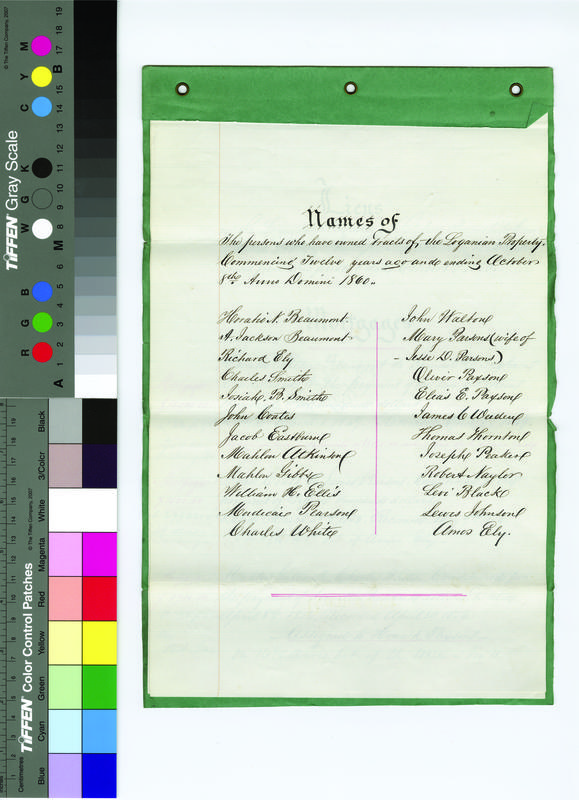 Names of
The persons who have owned Tracts of the Loganian Property.
Commencing Twelve years ago and ending October
8th, Anno Domini 1860.
Horatio N. Beaumont.
A. Jackson Beaumont
Richard Ely
Charles Smith
Josiah B. Smith
John Coates
Jacob Eastburn
Mahlon Atkinson
Mahlon Gibbs
William H. Ellis
Mordicai Pearson
Charles White
John Walton
Mary Parsons (wife of
- Jesse D. Parsons)
Oliver Paxson
Elias E. Paxson
James C
Thomas Thornton
Joseph
Robert Naylor
Levi Black
Lewis Johnson
Amos Ely.
TIFFEN Gray Scale
© The Tiffen Company, 2007
R G B W G K C Y M
A 1 2 3 4 5 6 M 8 9 10 11 12 13 14 15 B 17 18 19
TIFFEN Color Control Patches
© The Tiffen Company, 2007
Centimetres
Blue Cyan Green Yellow Red Magenta White 3/Color Black